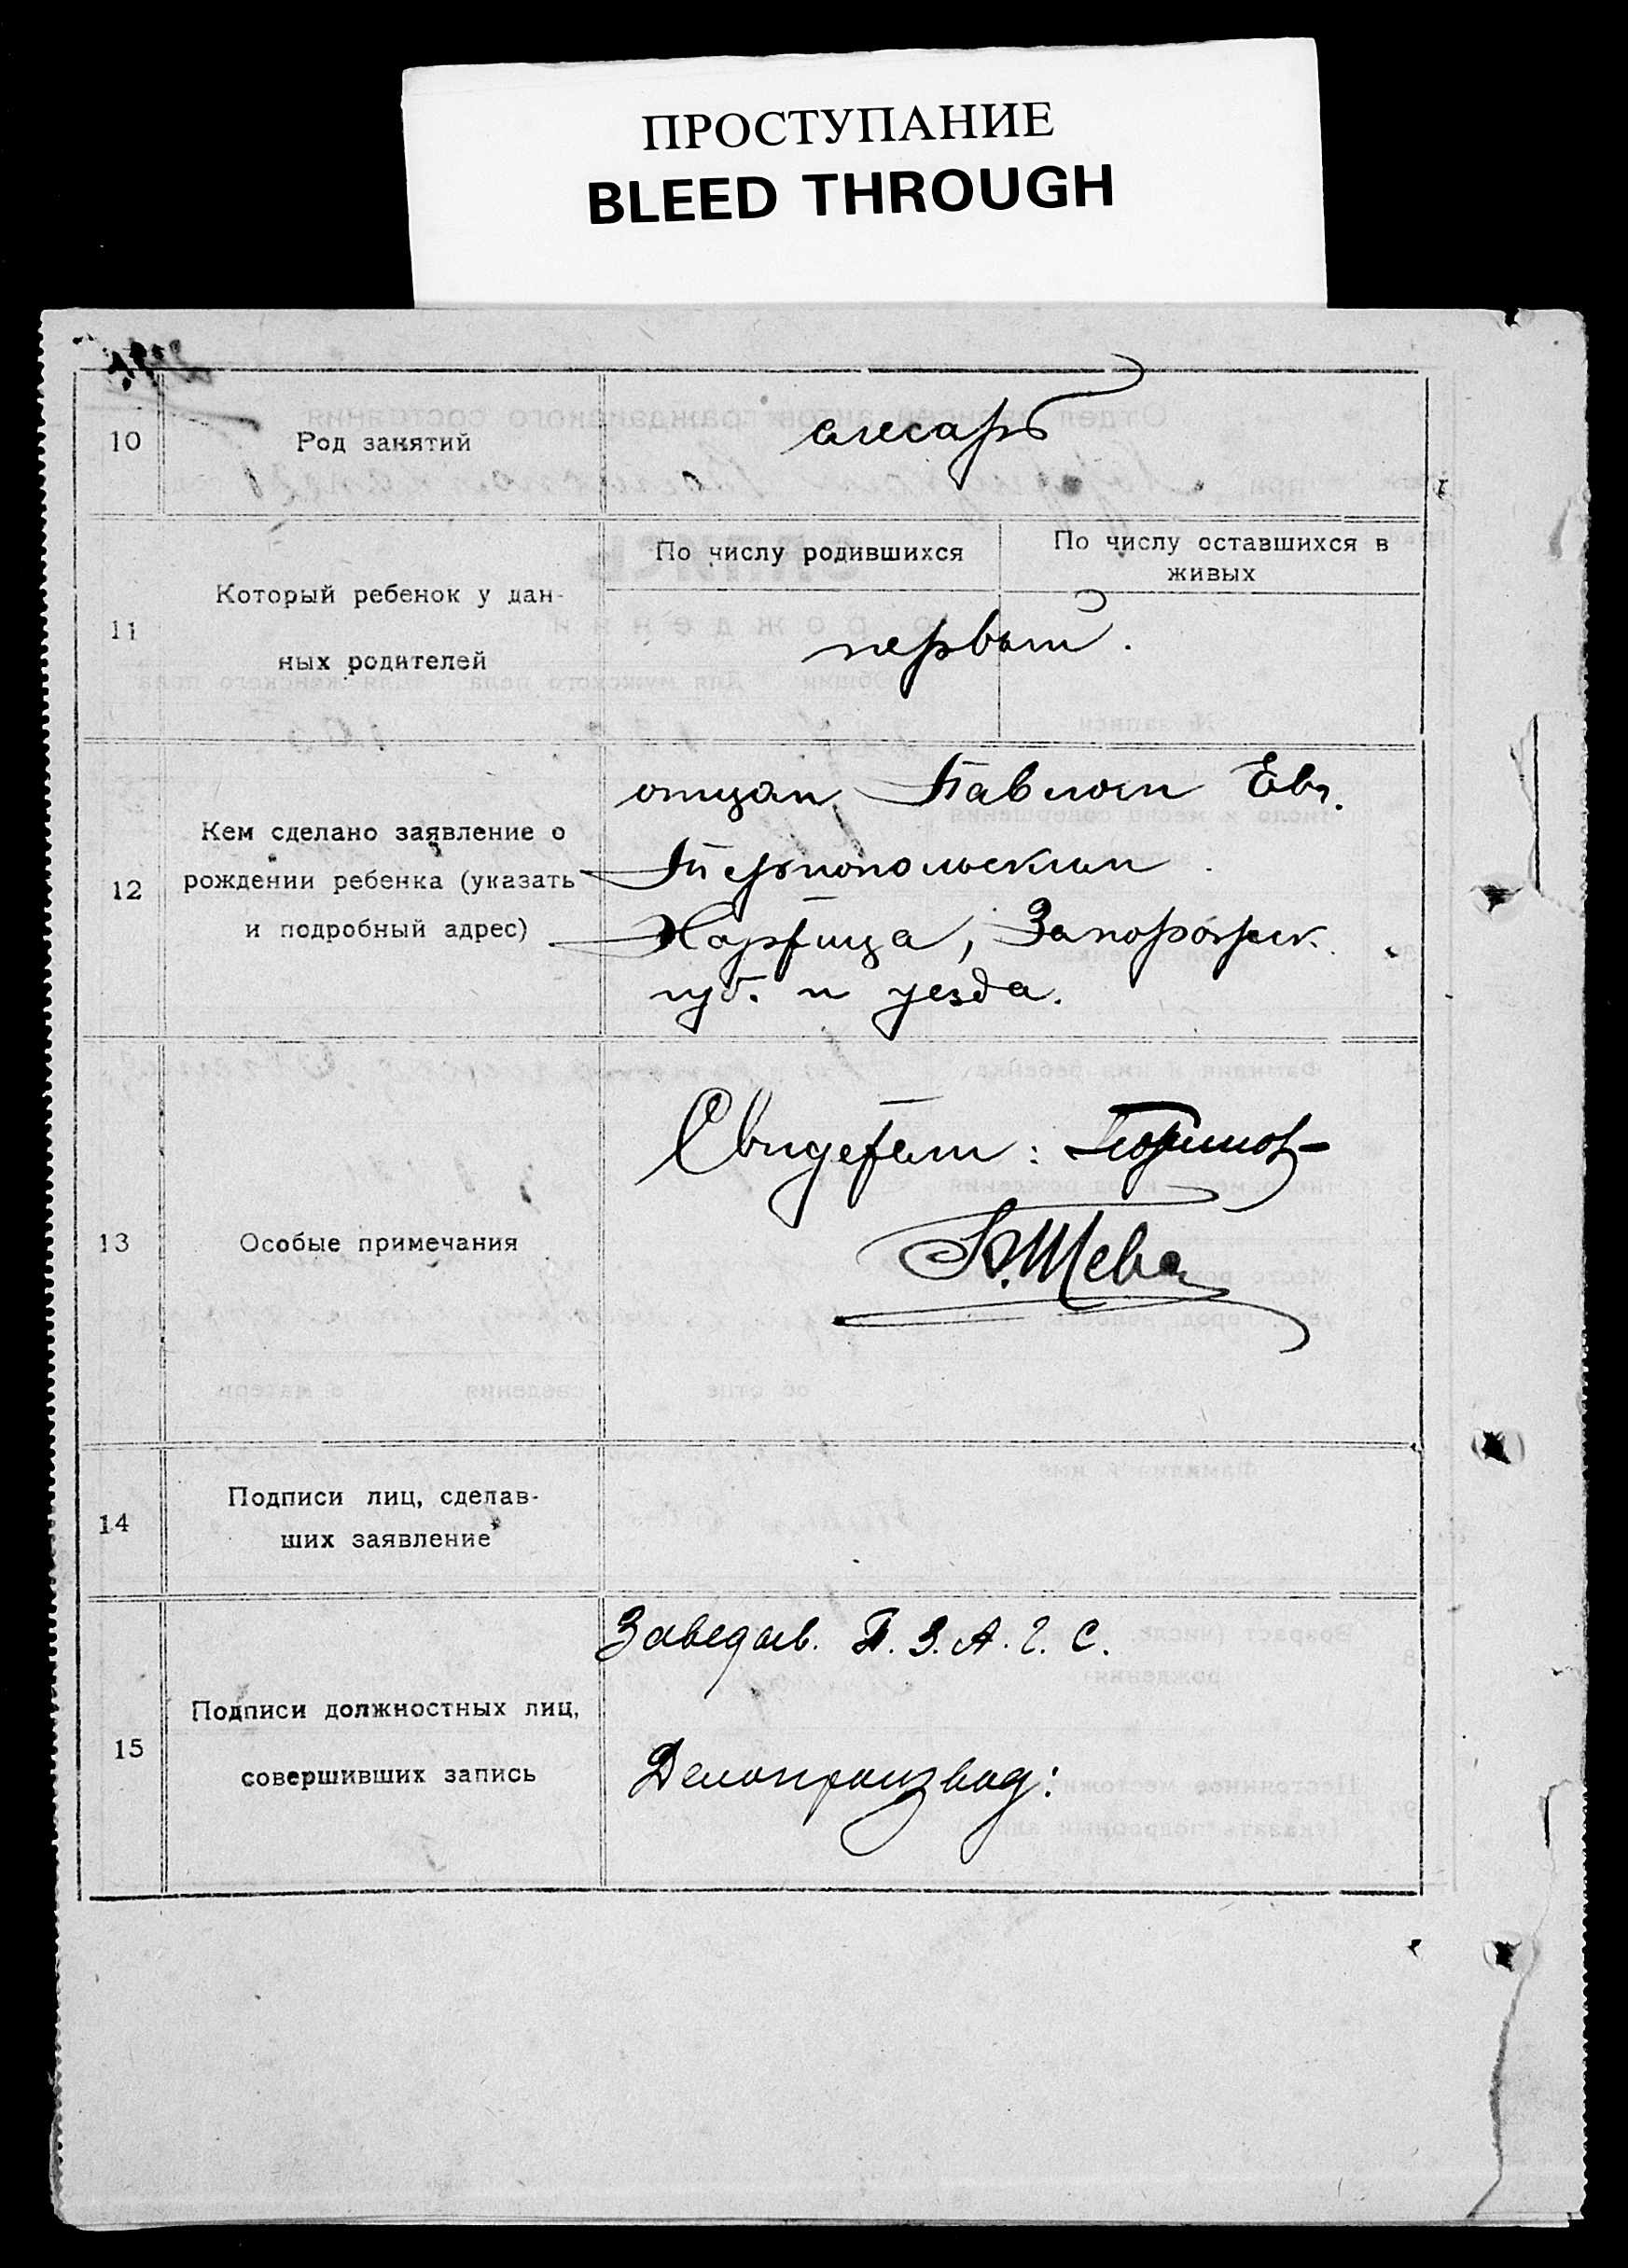 ПРОСТУПАНИЕ
BLEED THROUGH
10
Род занятий
слесарь
11
Который ребенок у дан-
ных родителей
По числу родившихся
По числу оставшихся в
живых
первый.
12
Кем сделано заявление о
рождении ребенка (указать
и подробный адрес)
отцом Павлом Евг.
Тернопольским.
Хортица, Запорожск.
губ. и уезда.
13
Особые примечания
Свидетели:
14
Подписи лиц, сделав-
ших заявление
15
Подписи должностных лиц,
совершивших запись
Заведыв. П. З. А. Г. С.
Делопроизвод: